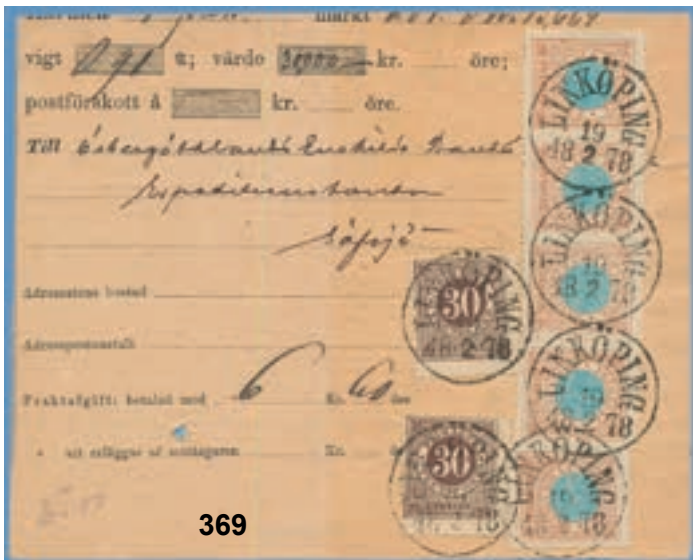 märkt
vigt 291 ℔; värde 30000 kr. öre;
postförskott å kr. öre.
Till Östergöthlands Enskilda Banks
Expeditionskontor
Säfsjö
Adressatens bostad
Adresspostanstalt
Fraktafgift: betalad med 6 Kr. 60 öre
" att erläggas af mottagaren Kr.
LINKÖPING
19
48 2 78
LINKÖPING
19
48 2 78
LINKÖPING
19
2 78
LINKÖPING
2 78
30
KÖPING
48 2 78
30
PING
2 78
369